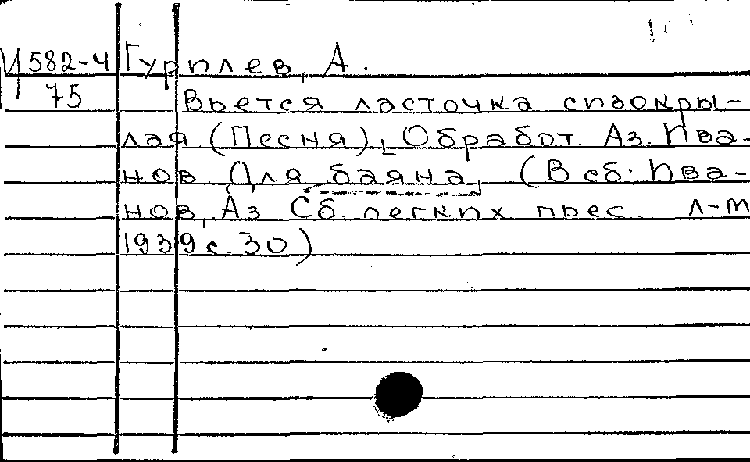 И 582-4 Гурилев, А.
75 Вьется ласточка сизокры-
лая (Песня). Обработ. Аз. Ива-
нов. Для баяна, (В сб: Ива-
нов, Аз Сб. легких пьес. Л-М
1939 с. 30)